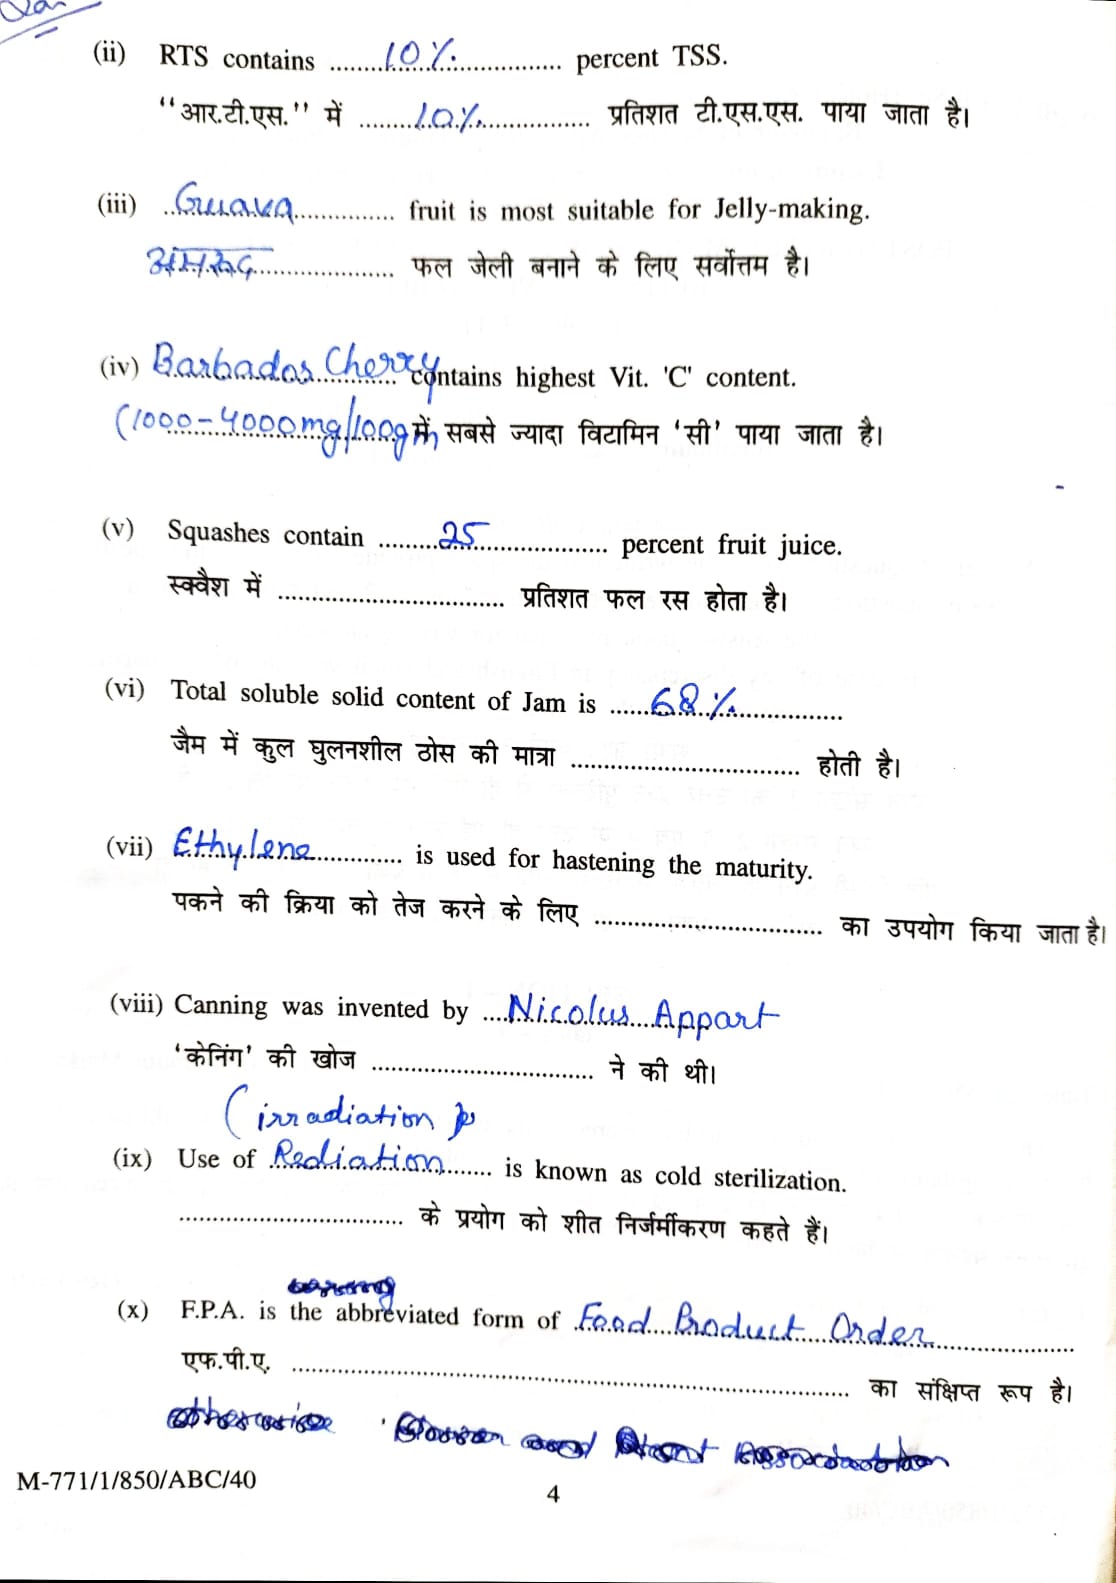 (ii) RTS contains ........10%................ percent TSS.
‘‘आर.टी.एस.’’ में ........10%................ प्रतिशत टी.एस.एस. पाया जाता है।
(iii) ..Guava.............. fruit is most suitable for Jelly-making.
अमरूद.................... फल जेली बनाने के लिए सर्वोत्तम है।
(iv) Barbados Cherry contains highest Vit. 'C' content.
(1000-4000mg/100g में सबसे ज्यादा विटामिन ‘सी’ पाया जाता है।
(v) Squashes contain .........25.................... percent fruit juice.
स्क्वैश में ................................. प्रतिशत फल रस होता है।
(vi) Total soluble solid content of Jam is ......68%................
जैम में कुल घुलनशील ठोस की मात्रा ................................. होती है।
(vii) Ethylene............. is used for hastening the maturity.
पकने की क्रिया को तेज करने के लिए ................................. का उपयोग किया जाता है।
(viii) Canning was invented by ....Nicolus Appart
‘केनिंग’ की खोज ................................. ने की थी।
(irradiation
(ix) Use of Rediation....... is known as cold sterilization.
................................. के प्रयोग को शीत निर्जर्मीकरण कहते हैं।
(x) F.P.A. is the abbreviated form of Food Product Order....................
एफ.पी.ए. ................................................................................. का संक्षिप्त रूप है।
M-771/1/850/ABC/40
4